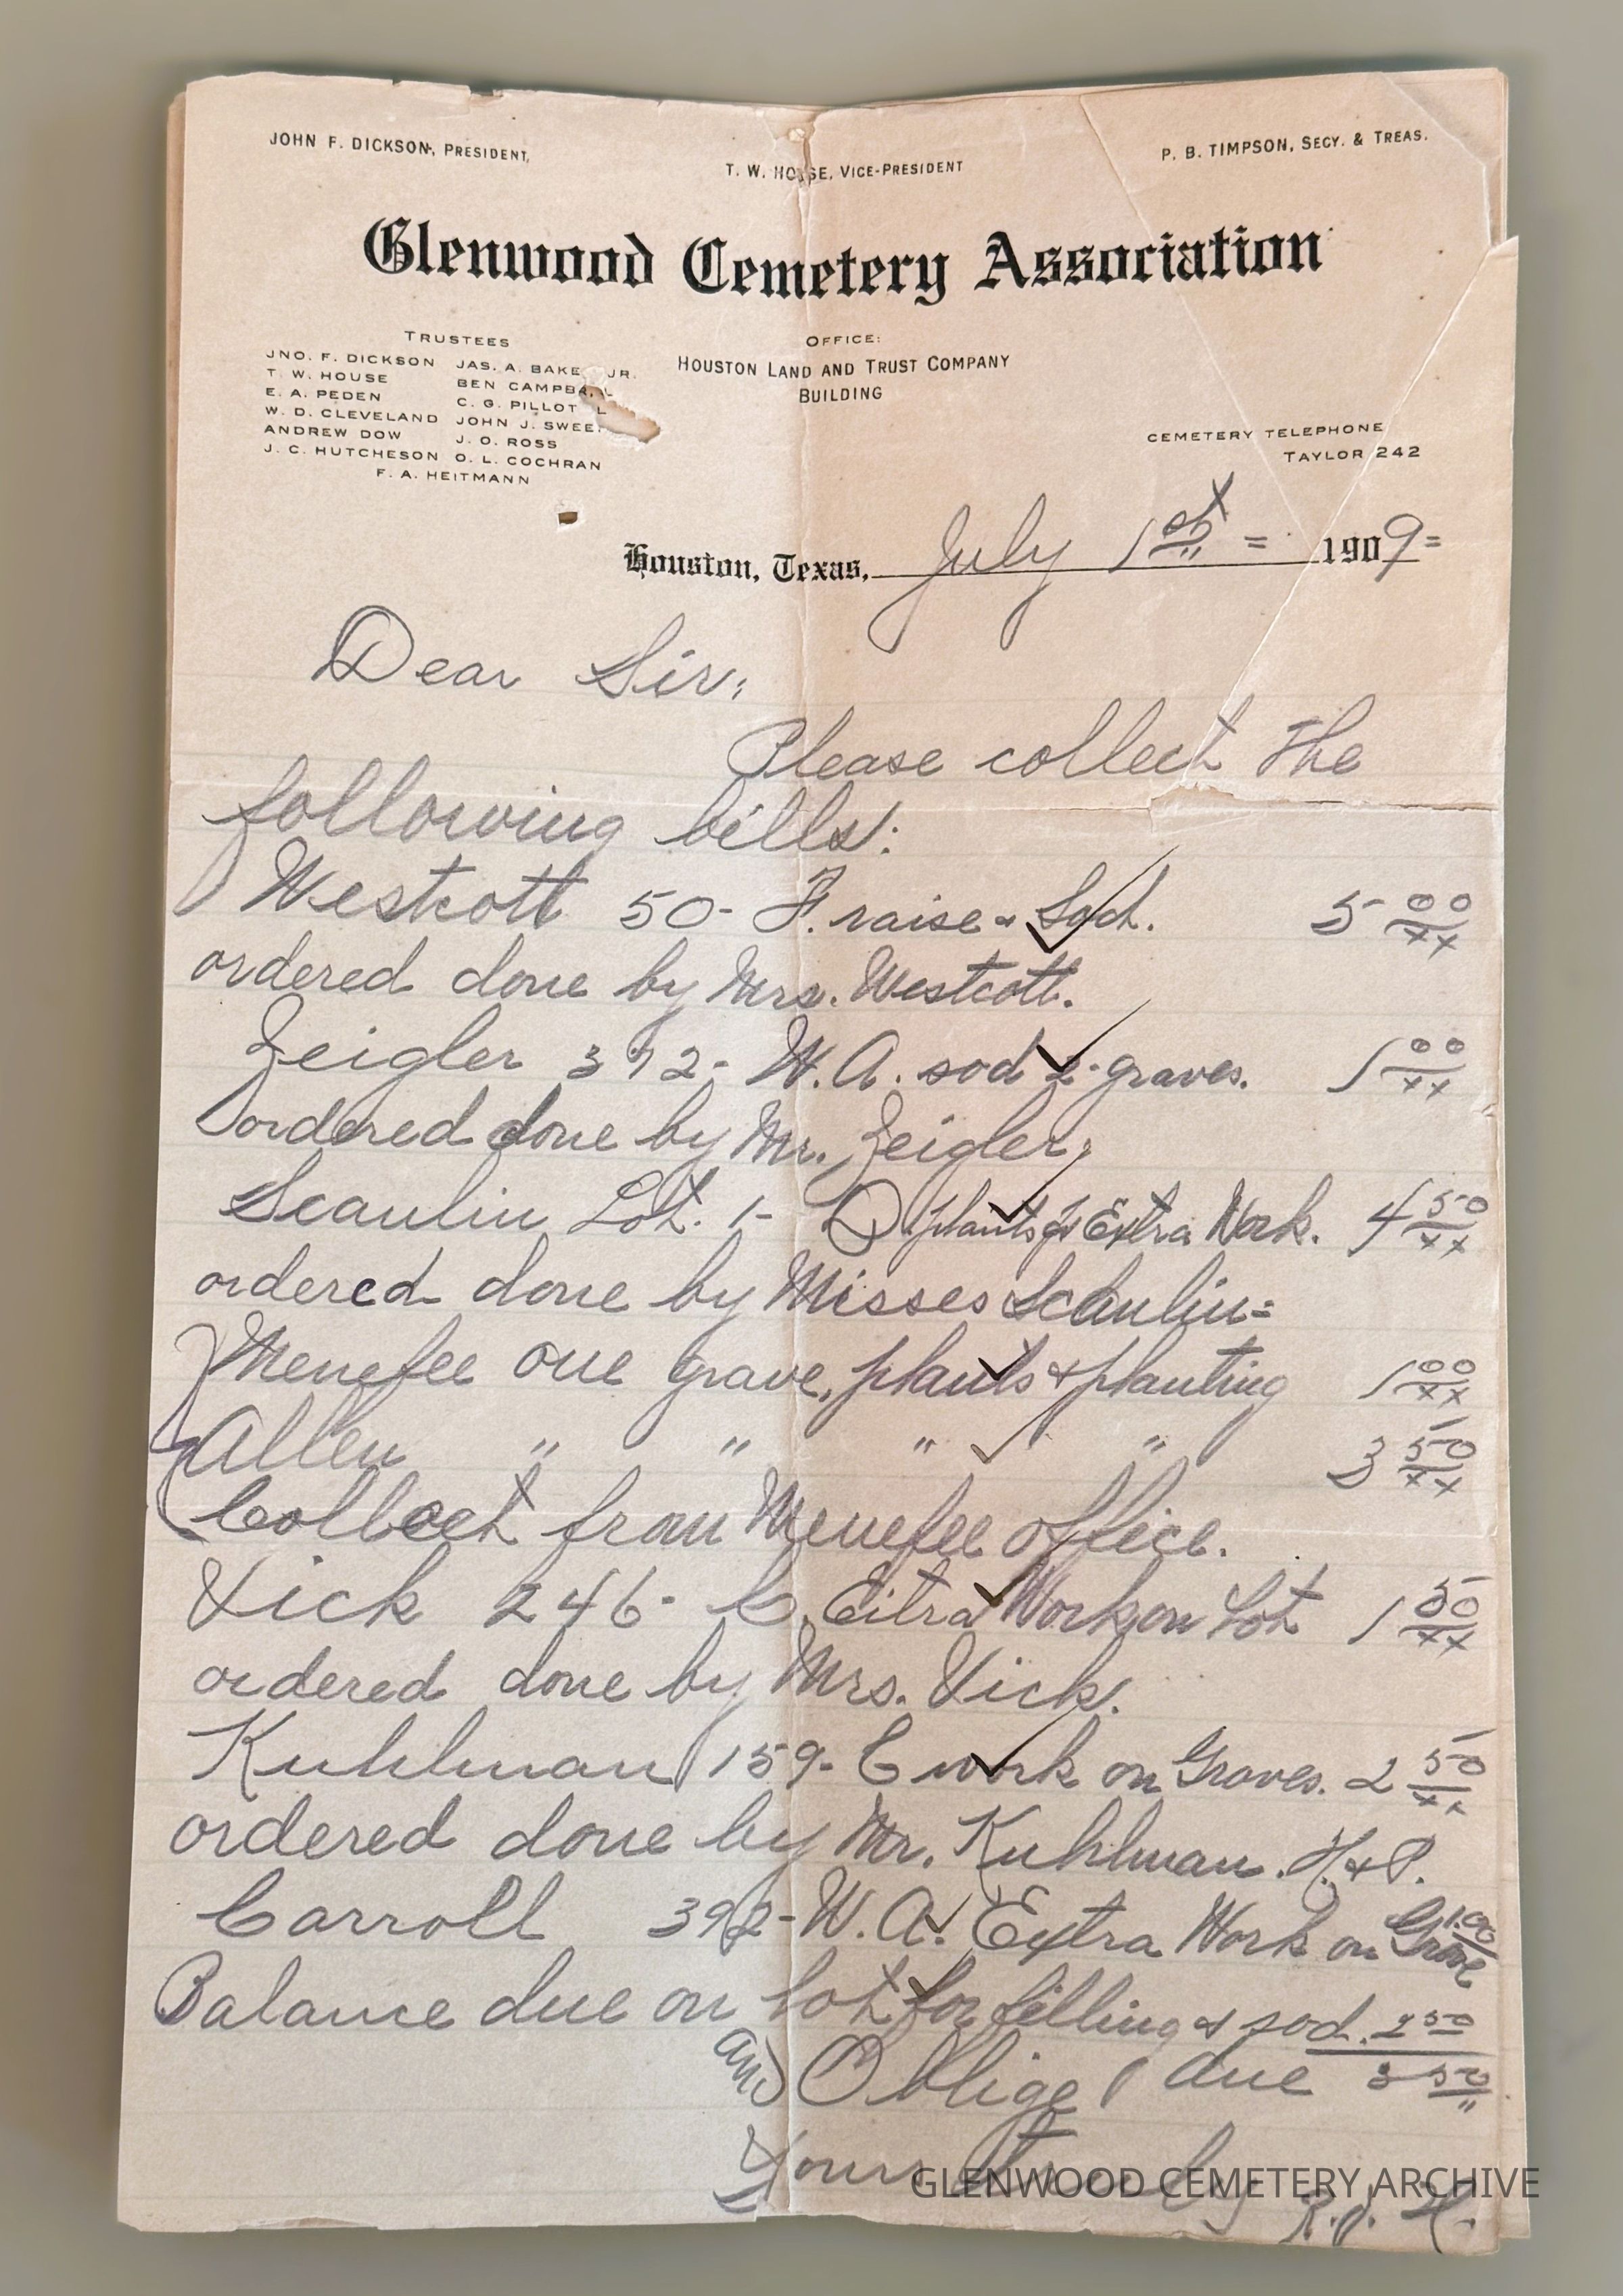 JOHN F. DICKSON, PRESIDENT,
T. W. HOUSE, VICE-PRESIDENT
P. B. TIMPSON, SECY. & TREAS.
Glenwood Cemetery Association
TRUSTEES
JNO. F. DICKSON JAS. A. BAKE JR.
T. W. HOUSE BEN CAMPBELL
E. A. PEDEN C. G. PILLOT
W. D. CLEVELAND JOHN J. SWEE
ANDREW DOW J. O. ROSS
J. C. HUTCHESON O. L. COCHRAN
F. A. HEITMANN
OFFICE:
HOUSTON LAND AND TRUST COMPANY
BUILDING
CEMETERY TELEPHONE
TAYLOR 242
Houston, Texas, July 1st = 1909=
Dear Sir:
Please collect the
following bills:
Westcott 50- F. raise & Sod. 5 00/xx
ordered done by Mrs. Westcott.
Zeigler 392- W.A. sod 2-graves. 1 00/xx
ordered done by Mr. Zeigler,
Scanlin Lot. 1- O. plants & Extra Work. 4 50/xx
ordered done by Misses Scanlin=
Menefee one grave, plants & planting 1 00/xx
Allen " " " " 3 50/xx
Collect from Menefee office.
Vick 246- C. Extra Work on Lot 1 50/xx
ordered done by Mrs. Vick.
Kuhlman 159- C work on Graves. 2 50/xx
ordered done by Mr. Kuhlman. H. & P.
Carroll 392- W.A. Extra Work on Grave 1.00
Balance due on Lot for filling & sod. 2 50
and Oblige due 3 50
Yours truly
R.J. H.
GLENWOOD CEMETERY ARCHIVE